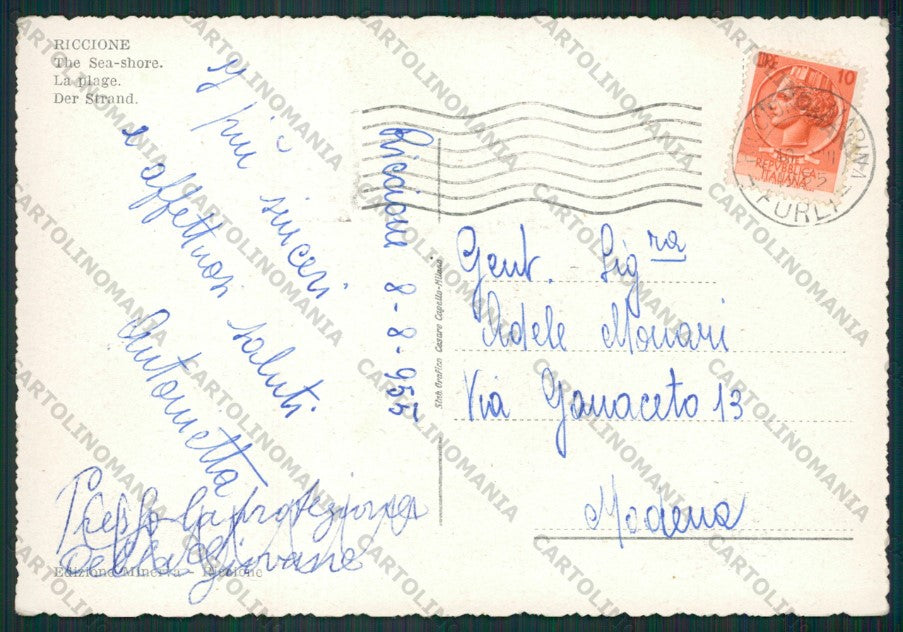 RICCIONE
The Sea-shore.
La plage.
Der Strand.
I più sinceri
e affettuosi saluti
Antonietta
Riccione 8-8-955
Presso la protezione
Della Giovane
Edizione Minerva - Riccione
Stab. Grafico Cesare Capello-Milano
LIRE 10
POSTE
REPUBBLICA
ITALIANA
FORLI
Gent. Sig.ra
Adele Monari
Via Ganaceto 13
Modena
CARTOLINOMANIA